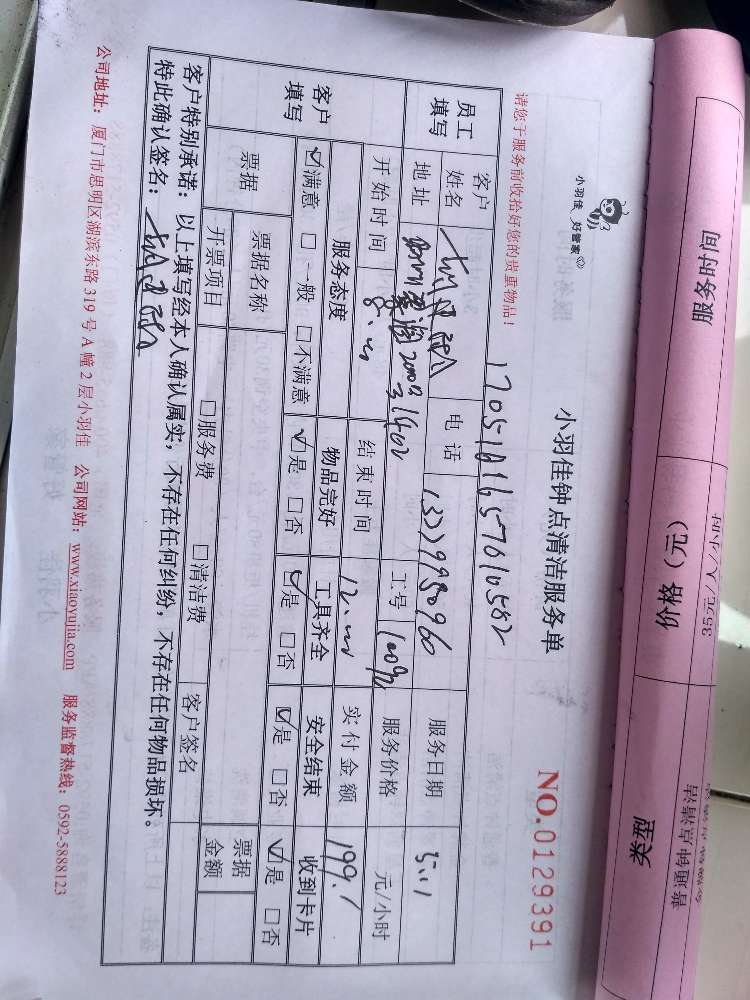 服务时间
价格（元）
类型
35元/人/小时
普通钟点清洁
小羽佳 好管家
小羽佳钟点清洁服务单
NO.0129391
请您于服务前收拾好您的贵重物品！
员工填写
客户姓名
电话
13779950960
服务日期
5.11
地址
工号
服务价格
元/小时
开始时间
8:00
结束时间
12:00
实付金额
199.1
客户填写
服务态度
物品完好
工具齐全
安全结束
收到卡片
☑满意 □一般 □不满意
☑是 □否
☑是 □否
☑是 □否
☑是 □否
票据
票据名称
开票项目
□服务费
□清洁费
客户签名
票据金额
客户特别承诺：以上填写经本人确认属实，不存在任何纠纷，不存在任何物品损坏。
特此确认签名：
公司地址：厦门市思明区湖滨东路319号A幢2层小羽佳 公司网站：www.xiaoyujia.com 服务监督热线：0592-5888123